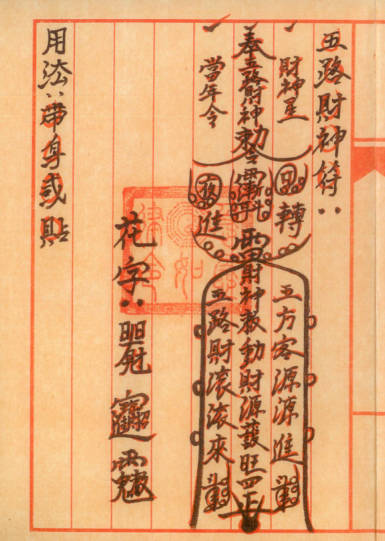 五路財神符：
財神星
奉五路財神勅令
當年令
轉
進
五方客源源進
雷財神敕動財源護旺四正
五路財滾滾來
花字：
用法：帶身或貼